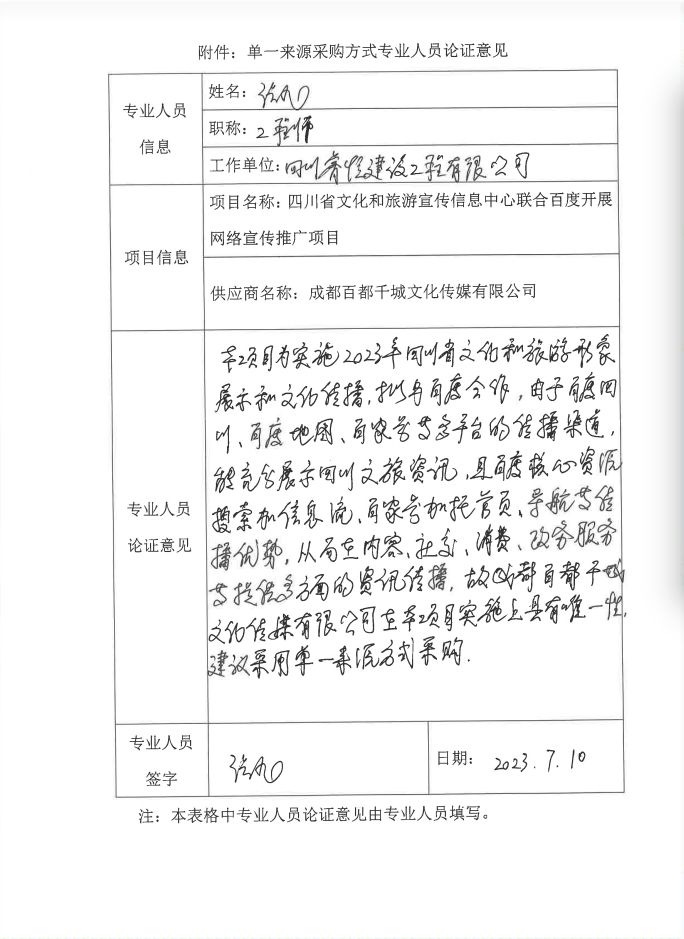 附件：单一来源采购方式专业人员论证意见
专业人员
信息
姓名：
职称：工程师
工作单位：四川睿恒建设工程有限公司
项目信息
项目名称：四川省文化和旅游宣传信息中心联合百度开展
网络宣传推广项目
供应商名称：成都百都千城文化传媒有限公司
专业人员
论证意见
本项目为实施2023年四川省文化和旅游形象
展示和文化传播，拟与百度合作，由于百度四
川、百度地图、百家号等多平台的传播渠道，
能充分展示四川文旅资讯，且百度核心资源
搜索加信息流、百家号加托管页、导航等传
播优势，从而在内容、社交、消费、政务服务
等提供多方面的资讯传播，故成都百都千城
文化传媒有限公司在本项目实施上具有唯一性，
建议采用单一来源方式采购.
专业人员
签字
日期：2023.7.10
注：本表格中专业人员论证意见由专业人员填写。